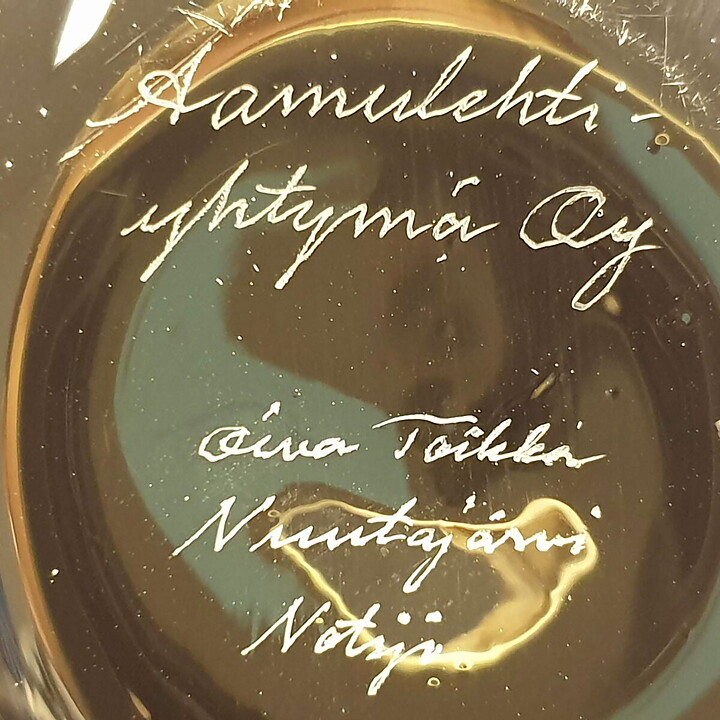 Aamulehti-
yhtymä Oy
Oiva Toikka
Nuutajärvi
Notsjö